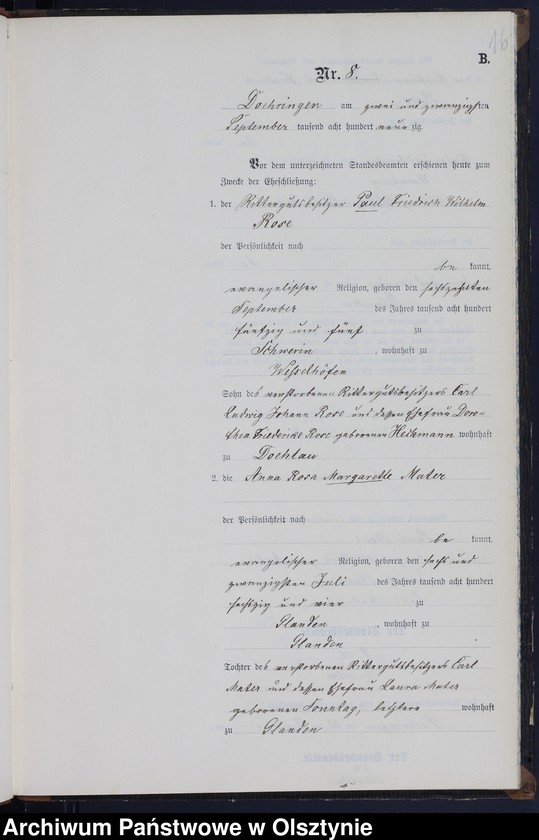 16
B.
Nr. 8.
Doehringen am zwei und zwanzigsten
September tausend acht hundert neunzig.
Vor dem unterzeichneten Standesbeamten erschienen heute zum
Zwecke der Eheschließung:
1. der Rittergutsbesitzer Paul Friedrich Wilhelm
Rose
der Persönlichkeit nach
be kannt,
evangelischer Religion, geboren den sechszehnten
September des Jahres tausend acht hundert
fünfzig und fünf zu
Schwerin, wohnhaft zu
Sohn des verstorbenen Rittergutsbesitzers Carl
Ludwig Johann Rose und dessen Ehefrau Doro-
thea Friederike Rose geborenen wohnhaft
zu Doehlau
2. die Anna Rosa Margarethe Mater
der Persönlichkeit nach
be kannt,
evangelischer Religion, geboren den sechs und
zwanzigsten Juli des Jahres tausend acht hundert
sechszig und vier zu
Glanden, wohnhaft zu
Glanden
Tochter des verstorbenen Rittergutsbesitzers Carl
Mater und dessen Ehefrau Laura Mater
geborenen Sonntag, letztere wohnhaft
zu Glanden
Archiwum Państwowe w Olsztynie